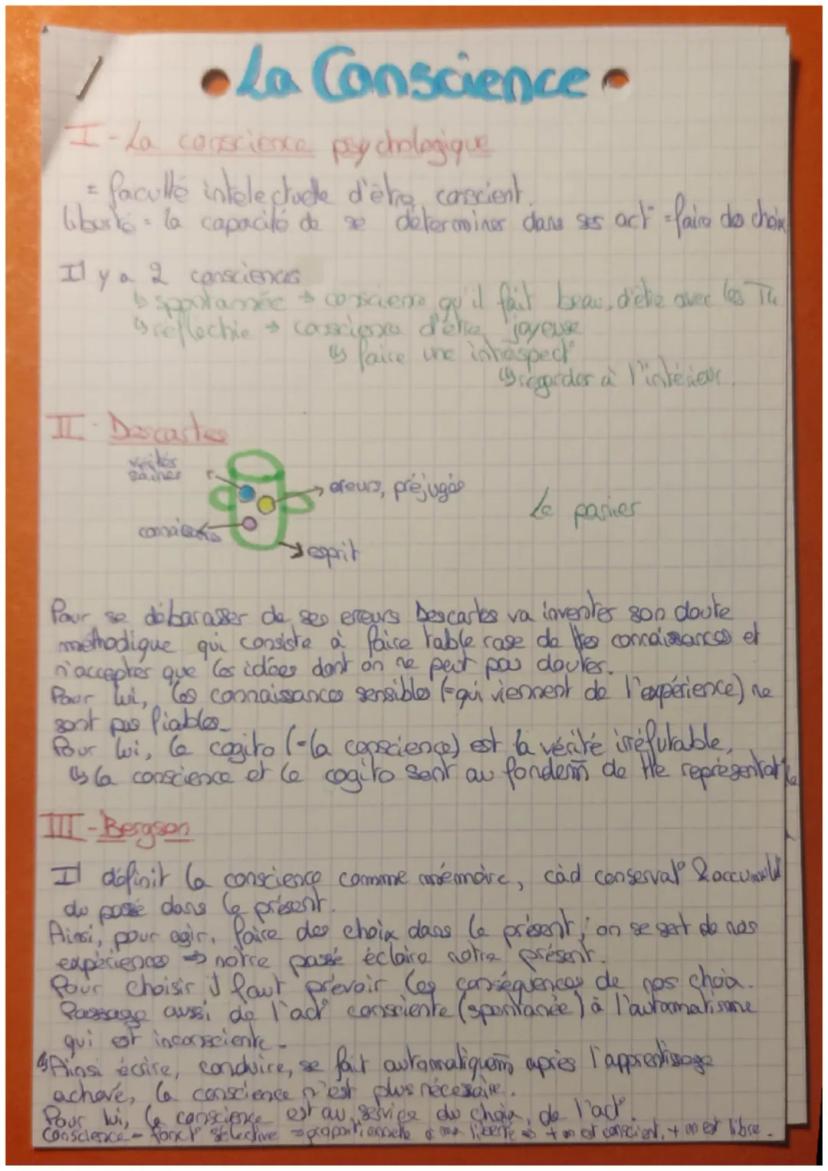 • La Conscience •
I - La conscience psychologique
= faculté intelectuelle d'être conscient.
liberté = la capacité de se déterminer dans ses act° = faire des choix
Il y a 2 consciences
↳ spontannée → conscience qu'il fait beau, d'être avec les
↳ réflechie → conscience d'être joyeuse
↳ faire une introspect°
↳ regarder à l'intérieur.
II - Descartes
vérités
saines
ereurs, préjugés
Le panier
esprit
Pour se débarasser de ses erreurs Descartes va inventer son doute
méthodique qui consiste à faire table rase de ttes connaissances et
n'accepter que les idées dont on ne peut pas douter.
Pour lui, les connaissances sensibles (=qui viennent de l'expérience) ne
sont pas fiables.
Pour lui, le cogito (=la conscience) est la vérité iréfutable,
↳ la conscience et le cogito sont au fondem̄ de tte représentat°
III - Bergson
Il définit la conscience comme mémoire, càd conservat° & accumulat°
du passé dans le présent.
Ainsi, pour agir, faire des choix dans le présent, on se sert de nos
expériences → notre passé éclaire notre présent.
Pour choisir il faut prévoir les conséquences de nos choix.
Passage aussi de l'act° consciente (spontanée) à l'automatisme
qui est inconsciente.
↳ Ainsi écrire, conduire, se fait automatiquem̄ après l'apprentissage
achevé, la conscience n'est plus nécessaire.
Pour lui, la conscience est au service du choix, de l'act°.
Conscience = fonct° sélective = proportionnelle à ma liberté → + on est conscient, + on est libre.